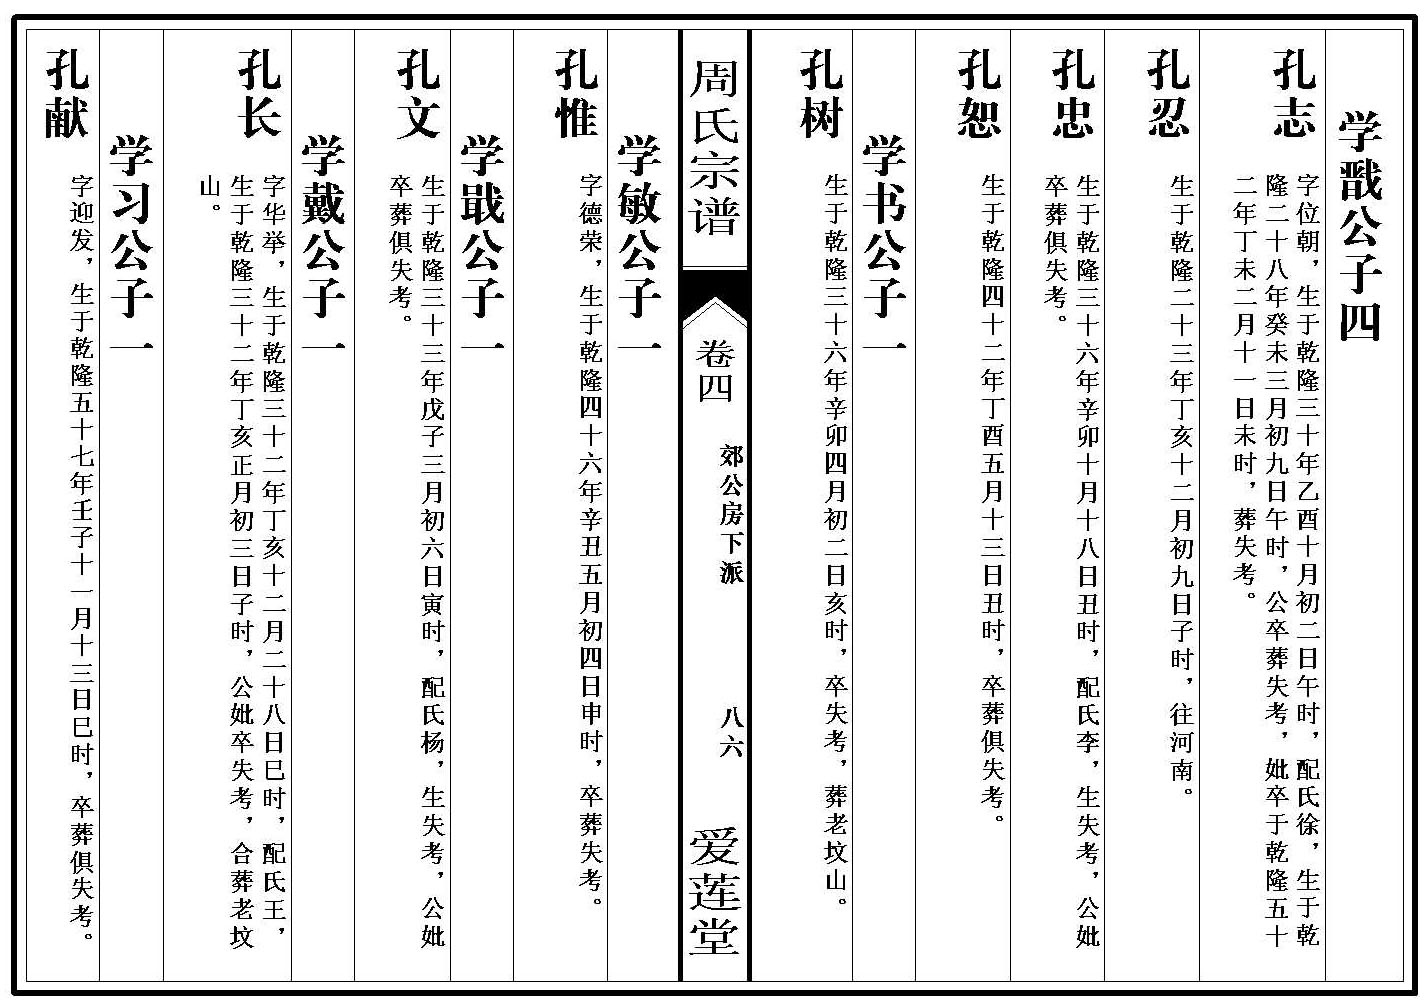 学戬公子四
孔志
字位朝，生于乾隆三十年乙酉十月初二日午时，配氏徐，生于乾
隆二十八年癸未三月初九日午时，公卒葬失考，妣卒于乾隆五十
二年丁未二月十一日未时，葬失考。
孔忍
生于乾隆二十三年丁亥十二月初九日子时，往河南。
孔忠
生于乾隆三十六年辛卯十月十八日丑时，配氏李，生失考，公妣
卒葬俱失考。
孔恕
生于乾隆四十二年丁酉五月十三日丑时，卒葬俱失考。
学书公子一
孔树
生于乾隆三十六年辛卯四月初二日亥时，卒失考，葬老坟山。
周氏宗谱
卷四
郊公房下派
八六
爱莲堂
学敏公子一
孔惟
字德荣，生于乾隆四十六年辛丑五月初四日申时，卒葬失考。
学戢公子一
孔文
生于乾隆三十三年戊子三月初六日寅时，配氏杨，生失考，公妣
卒葬俱失考。
学戴公子一
孔长
字华举，生于乾隆三十二年丁亥十二月二十八日巳时，配氏王，
生于乾隆三十二年丁亥正月初三日子时，公妣卒失考，合葬老坟
山。
学习公子一
孔献
字迎发，生于乾隆五十七年壬子十一月十三日巳时，卒葬俱失考。